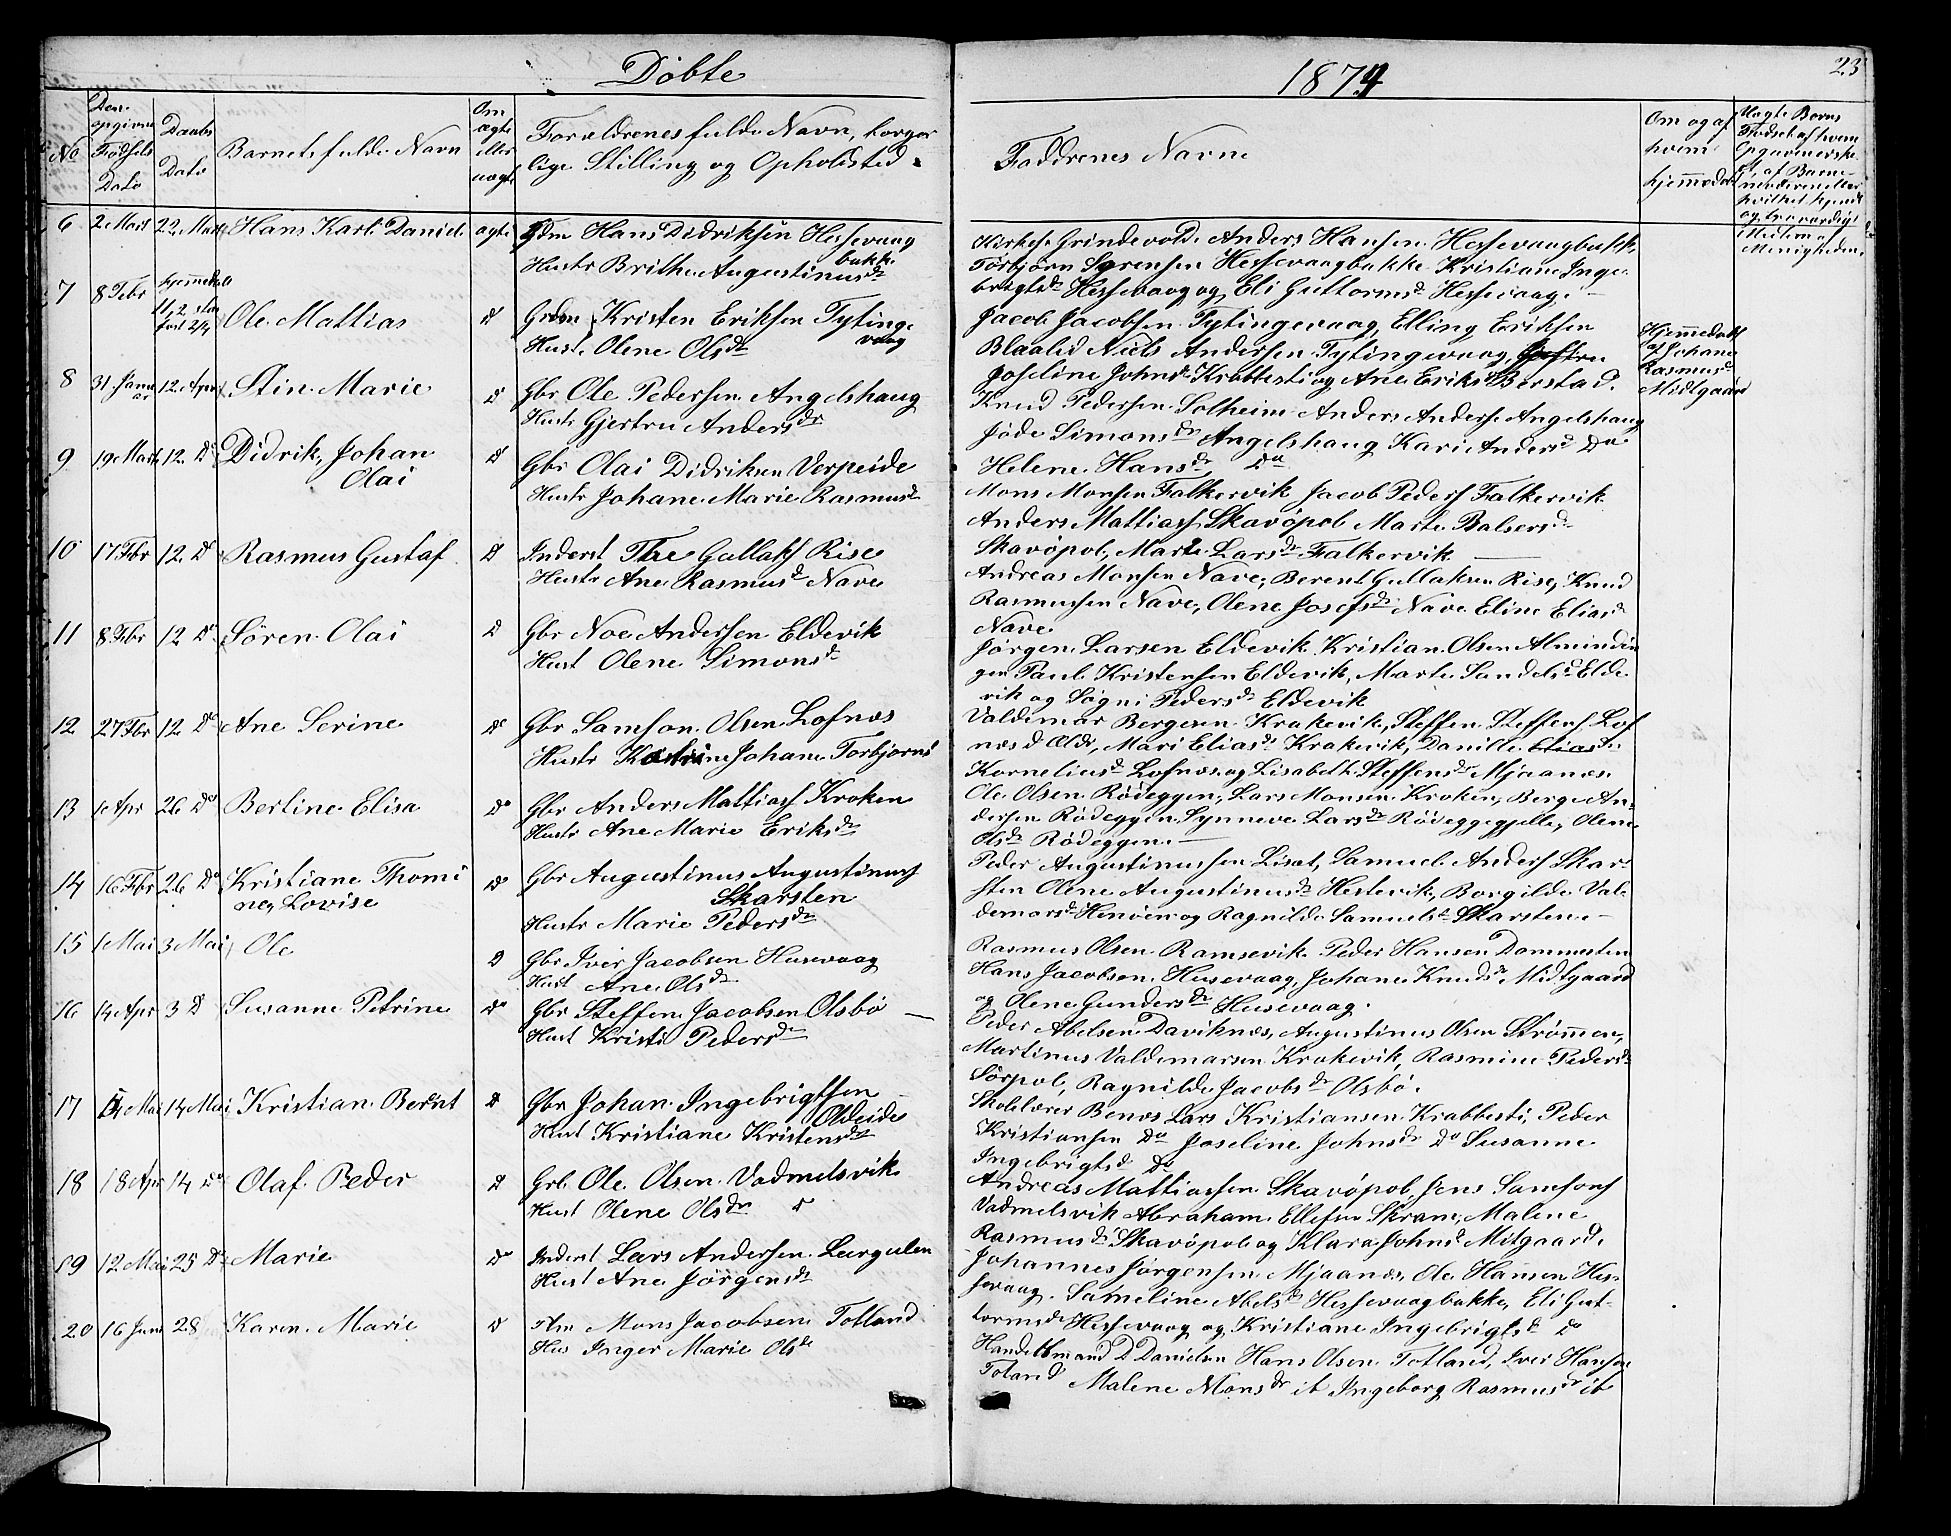 Döbte
1874
23
No
Den opgivne Födsels Dato
Daabs Dato
Barnets fulde Navn
Om ægte eller uægte
Forældrenes fulde Navn, borger
lige Stilling og Opholdsted
Faddrenes Navne
Om og af hvem hjemmedøbt
Uægte Børns
Fødsel af hvem
6 2 Mart 22 Mart Hans Karl Daniel ægte Gdm Hans Didriksen Hessevaag
bakke
Hustr Brithe Augustinusdr
Kirkes. Grindevold. Anders Hansen Hessevaagbakke
Torbjörn Sørensen Hessevaagbakke Kristiane Inge
brigtsdr Hessevaag og Eli Guttormsd Hessevaag.
7 8 Febr hjemmedøbt
11/2 Ole Mattias d Grdm Kristen Eriksen Tytinge
vaag
Hust. Olene Olsdr
Jacob Jacobsen Tytingevaag, Elling Eriksen
Blaalid Niels Andersen Tytingevaag,
Joseline Johnsd Krabbesti og Ane Eriksd Borstad.
Hjemmedøbt
af Johane
Rasmusd
Midtgaard
8 31 Januar 12 April Stin Marie d Gbr Ole Pedersen Angelshaug
Hustr Gjertru Andersdr
Knud Pedersen Solheim Anders Anders Angelshaug
Jöde Simonsdr Angelshaug Kari Andersd Do
Helene Hansdr Do
9 19 Marts 12 Do Didrik Johan
Olai
d Gbr Olai Didriksen Verpeide
Hustr Johane Marie Rasmusd
Mons Monsen Falkervik Jacob Peders Falkervik
Anders Mattiass Skavöpol Marte Balsersd
Skavöpol, Marte Larsdr Falkervik
10 17 Febr 12 Do Rasmus Gustaf d Inderst The Gullaks Rise
Hustr Ane Rasmusd Nave
Andreas Monsen Nave, Berent Gullaksen Rise, Knud
Rasmussen Nave, Olene Josefsdr Nave Eline Eliasd
Nave
11 8 Febr 12 Do Sören Olai d Gbr Noe Andersen Eldevik
Hust Olene Simonsd
Jörgen Larsen Eldevik Kristian Olsen Almindin
gen Paul Kristensen Eldevik, Marte Sandelsd Elde
vik og Sögni Pedersd Eldevik
12 27 Febr 12 Do Ane Serine do Gbr Samson Olsen Lofnæs
Hustr Katrine Johane Torbjørns
Valdimar Bergesen Krakevik, Steffen Steffens Lof
næs d Æld, Mari Eliasd Krakevik, Danille Eliasd
Korneliusd Lofnæs og Lisabeth Steffensdr Mjaanæs
13 1 Apr 26 Do Berline Elisa do Gbr Anders Mattiass Kroken
Hustr Ane Marie Eriksdr
Ole Olsen Rödeggen, Lars Monsen Kroken, Berge An-
dersen Rödeggen Synneve Larsdr Rödeggegjelle, Olene
Olsdr Rödeggen
14 16 Febr 26 Do Kristiane Thomi
ne, Lovise
do Gbr Augustinus Augustinuss
Skarsten
Hustr Marie Pedersdr
Peder Augustinussen Liset, Samuel Anders Skar
sten Olene Augustinusdr Hestevik, Borgilde Val-
demarsd Henöen og Ragnilde Samuelsd Skarsten
15 1 Mai 3 Mai Ole d Gbr Iver Jacobsen Husevaag
Hust Ane Olsdr
Rasmus Olsen Ramsevik Peder Hansen Dammesten
Hans Jacobsen Husevaag, Johane Knudsdr Midtgaard
og Olene Gundersdr Husevaag.
16 14 Apr 3 D Susanne Petrine do Gbr Steffen Jacobsen Olsbö
Hust Kristi Pedersdr
Peder Abelsen Daviknæs, Augustinus Olsen Strömmen,
Martinus Valdemarsen Krokevik, Rasmine Pedersd
Sörpol, Ragnilde Jacobsdr Olsbö.
17 4 Mai 14 Mai Kristian Bernt d Gbr Johan Ingebrigtsen
Oldeide
Hust Kristiane Kristensdr
Skolelærer Benæs Lars Kristiansen Krabbesti, Peder
Kristiansen Do Joseline Johnsdr Do Susanne
Ingebrigtsd Do
18 18 Apr 14 Do Olaf Peder d Grb Ole Olsen Vadmelsvik
Hust Olene Olsdr d
Andreas Mattiassen Skavöpol, Jens Samsons
Vadmelsvik Abraham Ellefsen Skram, Malene
Rasmusdr Skavöpol og Klara Johnsd Mitgaard.
19 12 Mai 25 Do Marie do Inderst Lars Andersen Largulen
Hust Ane Jörgensdr
Johannes Jørgensen Mjaanæs, Ole Hansen Hes-
sevaag. Sameline Abelsd Hessevaagbakke, Eli Gut-
tormsdr Hessevaag og Kristiane Ingebrigtsd Do
20 16 Juni 28 Karen Marie d Mons Jacobsen Totland
Hus Inger Marie Olsdr
Handelsmand D Danielsen Hans Olsen Totland, Iver Hansen
Totland Malene Monsdr it Ingeborg Rasmusdr it